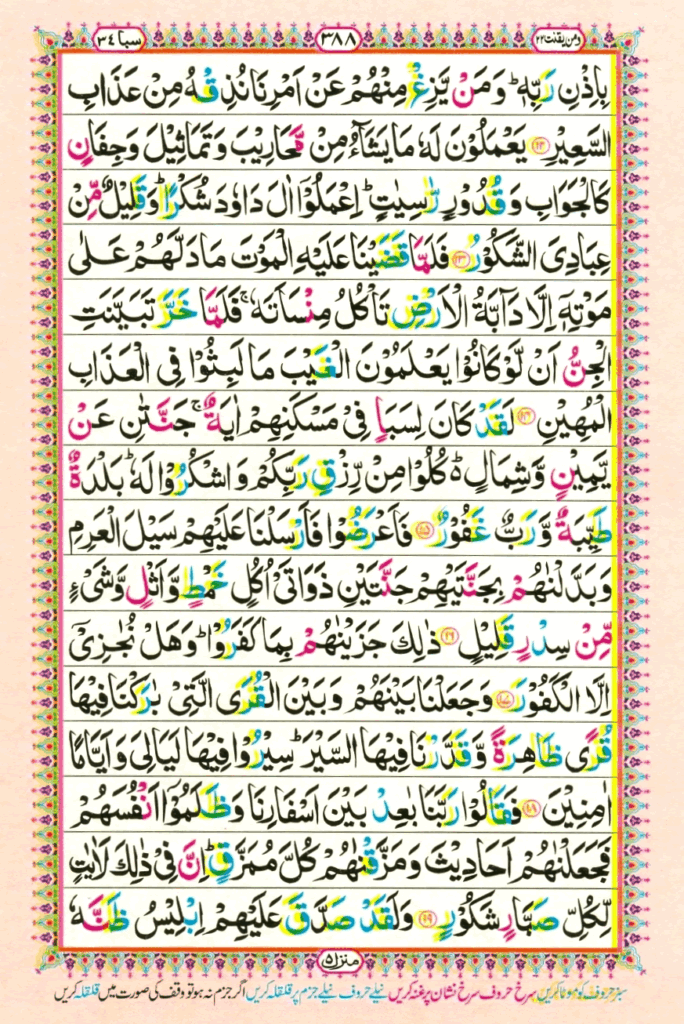 سبا ٣٤
٣٨٨
ومن یقنت ٢٢
بِاِذْنِ رَبِّهٖ ؕ وَ مَنْ یَّزِغْ مِنْهُمْ عَنْ اَمْرِنَا نُذِقْهُ مِنْ عَذَابِ
السَّعِیْرِ ﴿۱۲﴾ یَعْمَلُوْنَ لَهٗ مَا یَشَآءُ مِنْ مَّحَارِیْبَ وَ تَمَاثِیْلَ وَ جِفَانٍ
كَالْجَوَابِ وَ قُدُوْرٍ رّٰسِیٰتٍ ؕ اِعْمَلُوْۤا اٰلَ دَاوٗدَ شُكْرًا ؕ وَ قَلِیْلٌ مِّنْ
عِبَادِیَ الشَّكُوْرُ ﴿۱۳﴾ فَلَمَّا قَضَیْنَا عَلَیْهِ الْمَوْتَ مَا دَلَّهُمْ عَلٰی
مَوْتِهٖۤ اِلَّا دَآبَّةُ الْاَرْضِ تَاْكُلُ مِنْسَاَتَهٗ ۚ فَلَمَّا خَرَّ تَبَیَّنَتِ
الْجِنُّ اَنْ لَّوْ كَانُوْا یَعْلَمُوْنَ الْغَیْبَ مَا لَبِثُوْا فِی الْعَذَابِ
الْمُهِیْنِ ﴿۱۴﴾ لَقَدْ كَانَ لِسَبَاٍ فِیْ مَسْكَنِهِمْ اٰیَةٌ ۚ جَنَّتٰنِ عَنْ
یَّمِیْنٍ وَّ شِمَالٍ ؕ۬ كُلُوْا مِنْ رِّزْقِ رَبِّكُمْ وَ اشْكُرُوْا لَهٗ ؕ بَلْدَةٌ
طَیِّبَةٌ وَّ رَبٌّ غَفُوْرٌ ﴿۱۵﴾ فَاَعْرَضُوْا فَاَرْسَلْنَا عَلَیْهِمْ سَیْلَ الْعَرِمِ
وَ بَدَّلْنٰهُمْ بِجَنَّتَیْهِمْ جَنَّتَیْنِ ذَوَاتَیْ اُكُلٍ خَمْطٍ وَّ اَثْلٍ وَّ شَیْءٍ
مِّنْ سِدْرٍ قَلِیْلٍ ﴿۱۶﴾ ذٰلِكَ جَزَیْنٰهُمْ بِمَا كَفَرُوْا ؕ وَ هَلْ نُجٰزِیْۤ
اِلَّا الْكَفُوْرَ ﴿۱۷﴾ وَ جَعَلْنَا بَیْنَهُمْ وَ بَیْنَ الْقُرَی الَّتِیْ بٰرَكْنَا فِیْهَا
قُرًی ظَاهِرَةً وَّ قَدَّرْنَا فِیْهَا السَّیْرَ ؕ سِیْرُوْا فِیْهَا لَیَالِیَ وَ اَیَّامًا
اٰمِنِیْنَ ﴿۱۸﴾ فَقَالُوْا رَبَّنَا بٰعِدْ بَیْنَ اَسْفَارِنَا وَ ظَلَمُوْۤا اَنْفُسَهُمْ
فَجَعَلْنٰهُمْ اَحَادِیْثَ وَ مَزَّقْنٰهُمْ كُلَّ مُمَزَّقٍ ؕ اِنَّ فِیْ ذٰلِكَ لَاٰیٰتٍ
لِّكُلِّ صَبَّارٍ شَكُوْرٍ ﴿۱۹﴾ وَ لَقَدْ صَدَّقَ عَلَیْهِمْ اِبْلِیْسُ ظَنَّهٗ
منزل ٥
سبز حروف کو موٹا کریں سرخ حروف سرخ نشان پر غنہ کریں نیلے حروف نیلے جزم پر قلقلہ کریں اگر جزم نہ ہو تو وقف کی صورت میں قلقلہ کریں